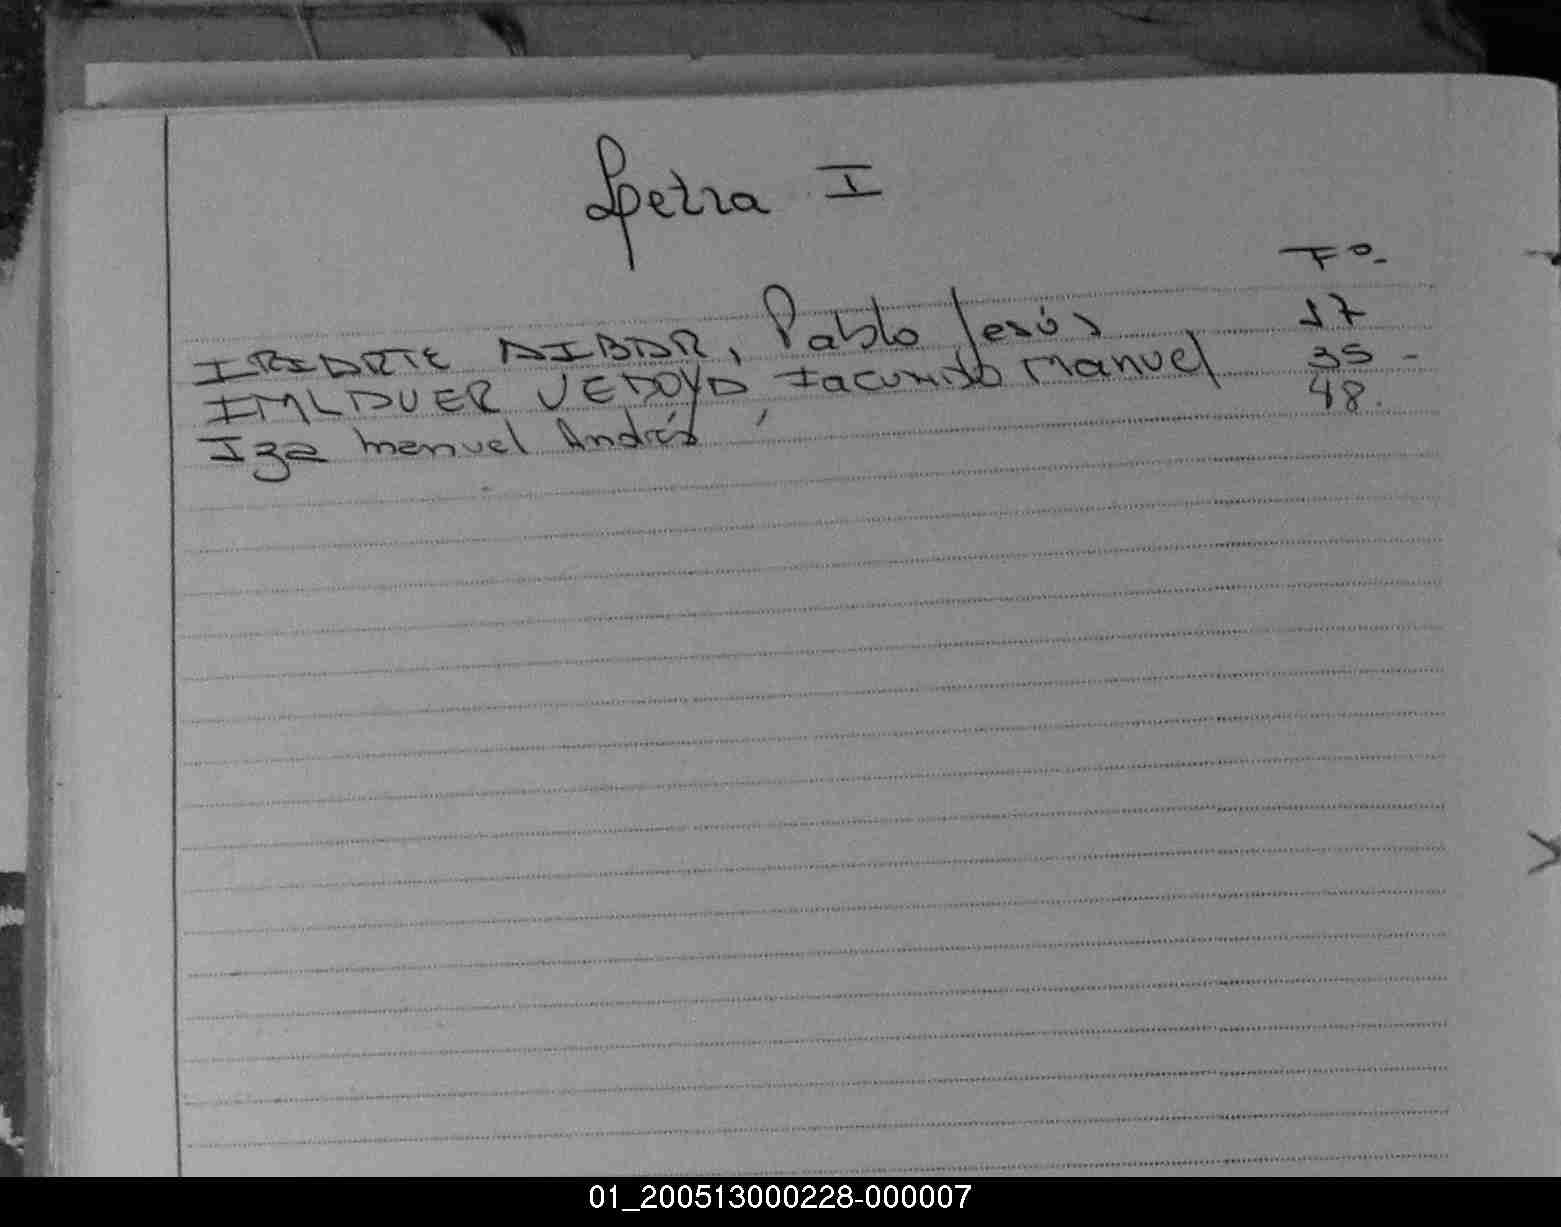 Letra I
Fº
IRIARTE AIBAR, Pablo Jesús 17
IMLAUER VEDOYA, Facundo Manuel 35 -
Iza Manuel Andrés 48.
01_200513000228-000007